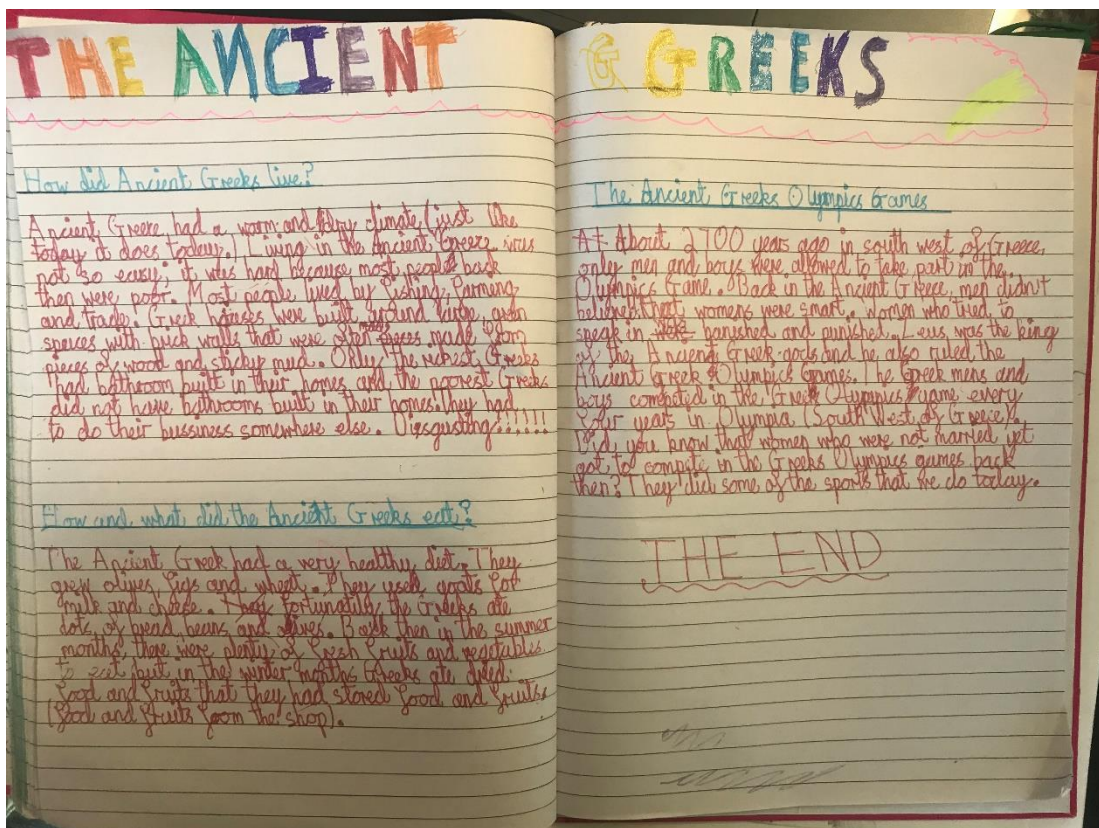 THE ANCIENT
How did Ancient Greeks live?
Ancient Greece had a warm and dry climate (just like
today it does today.) Living in the Ancient Greece was
not so easy; it was hard because most people back
then were poor. Most people lived by fishing, farming
and trade. Greek houses were built around large, open
spaces with brick walls that were often made from
pieces of wood and sticky mud. Only the richest Greeks
had bathroom built in their homes and the poorest Greeks
did not have bathrooms built in their homes. They had
to do their bussiness somewhere else. Disgusting!!!!!!
How and what did the Ancient Greeks eat?
The Ancient Greek had a very healthy diet. They
grew olives, figs and wheat. They used goats for
milk and cheese. Fortunatily the Greeks ate
lots of bread, beans and olives. Back then in the summer
months, there were plenty of fresh fruits and vegetables
to eat but in the winter months Greeks ate dried
food and fruits that they had stored food and fruits
(food and fruits from the shop).
G GREEKS
The Ancient Greeks Olympics Games
At About 2700 years ago in south west of Greece,
only men and boys were allowed to take part in the
Olympics Game. Back in the Ancient Greece, men didn't
believed that womens were smart. Women who tried to
speak in were banished and punished. Zeus was the king
of the Ancient Greek gods and he also ruled the
Ancient Greek Olympics Games. The Greek mens and
boys competed in the Greek Olympics game every
four years in Olympia (South West of Greece).
Did you know that women who were not married yet
got to compete in the Greeks Olympics games back
then? They did some of the sports that we do today.
THE END